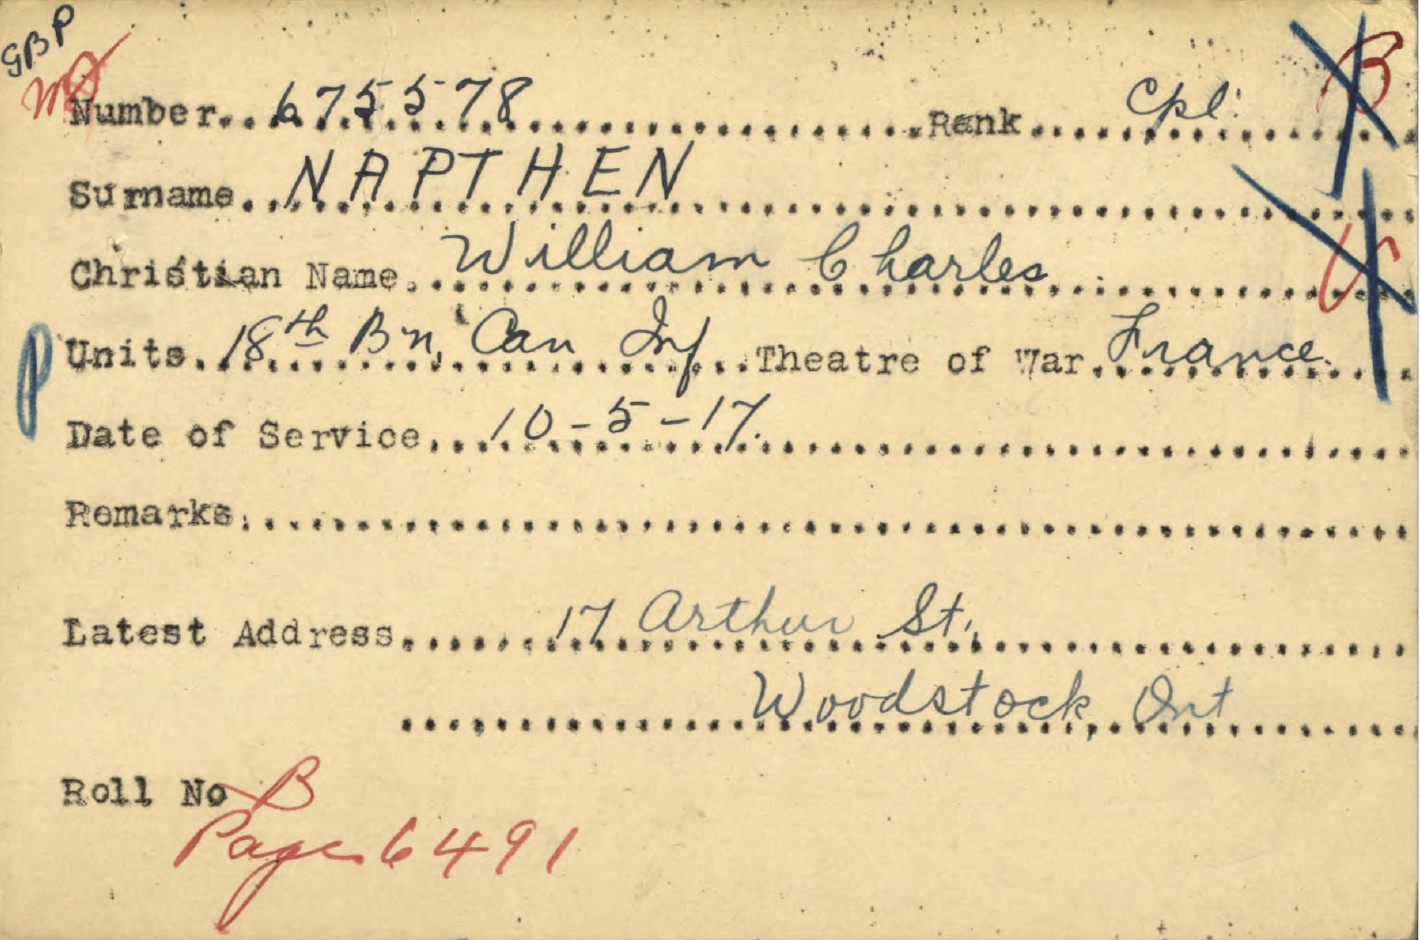 GBP
Number 675578 Rank Cpl. B
Surname NAPTHEN
Christian Name William Charles V
P Units 18th Bn, Can Inf Theatre of War France
Date of Service 10-5-17.
Remarks
Latest Address 17 Arthur St.,
Woodstock, Ont
Roll No B
Page 6491